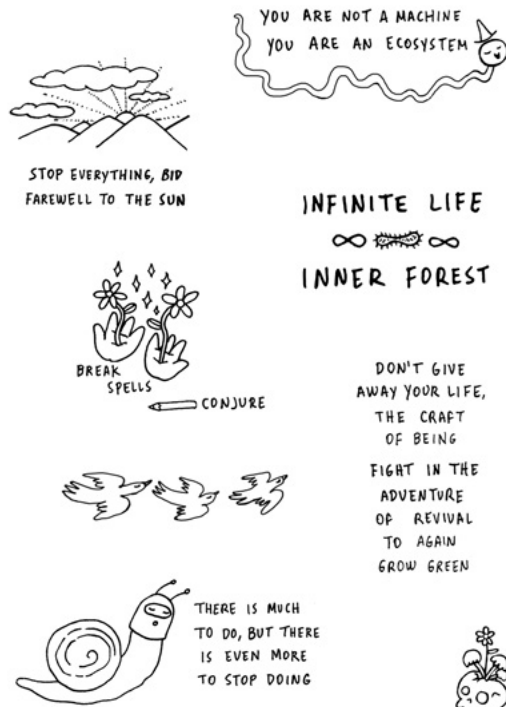 YOU ARE NOT A MACHINE
YOU ARE AN ECOSYSTEM
STOP EVERYTHING, BID
FAREWELL TO THE SUN
INFINITE LIFE
INNER FOREST
BREAK
SPELLS
CONJURE
DON'T GIVE
AWAY YOUR LIFE,
THE CRAFT
OF BEING
FIGHT IN THE
ADVENTURE
OF REVIVAL
TO AGAIN
GROW GREEN
THERE IS MUCH
TO DO, BUT THERE
IS EVEN MORE
TO STOP DOING